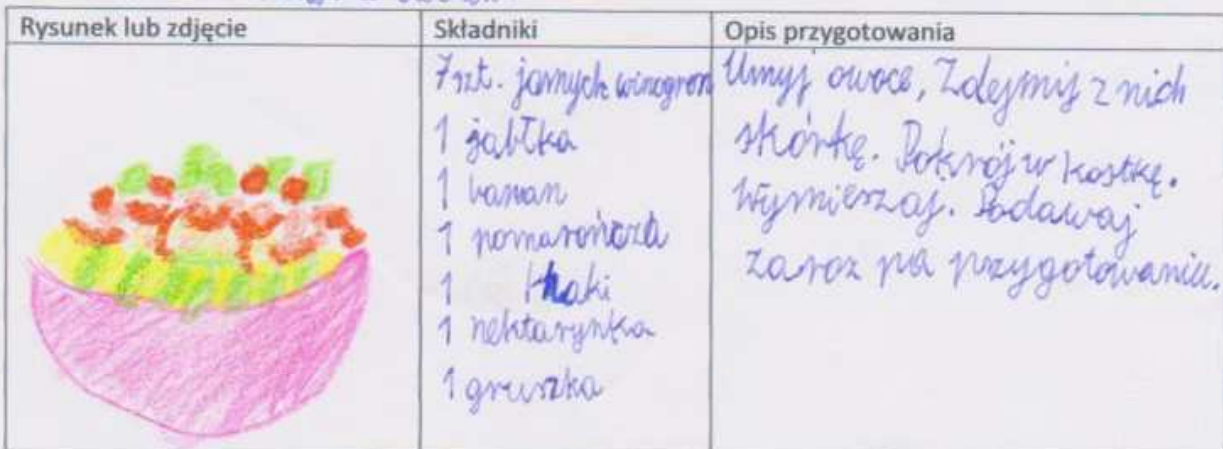 Rysunek lub zdjęcie
Składniki
Opis przygotowania
7 szt. jasnych winogron
1 jabłka
1 banan
1 pomarańcza
1 khaki
1 nektarynka
1 gruszka
Umyj owoce, Zdejmij z nich
skórkę. Pokrój w kostkę.
Wymieszaj. Podawaj
zaraz po przygotowaniu.